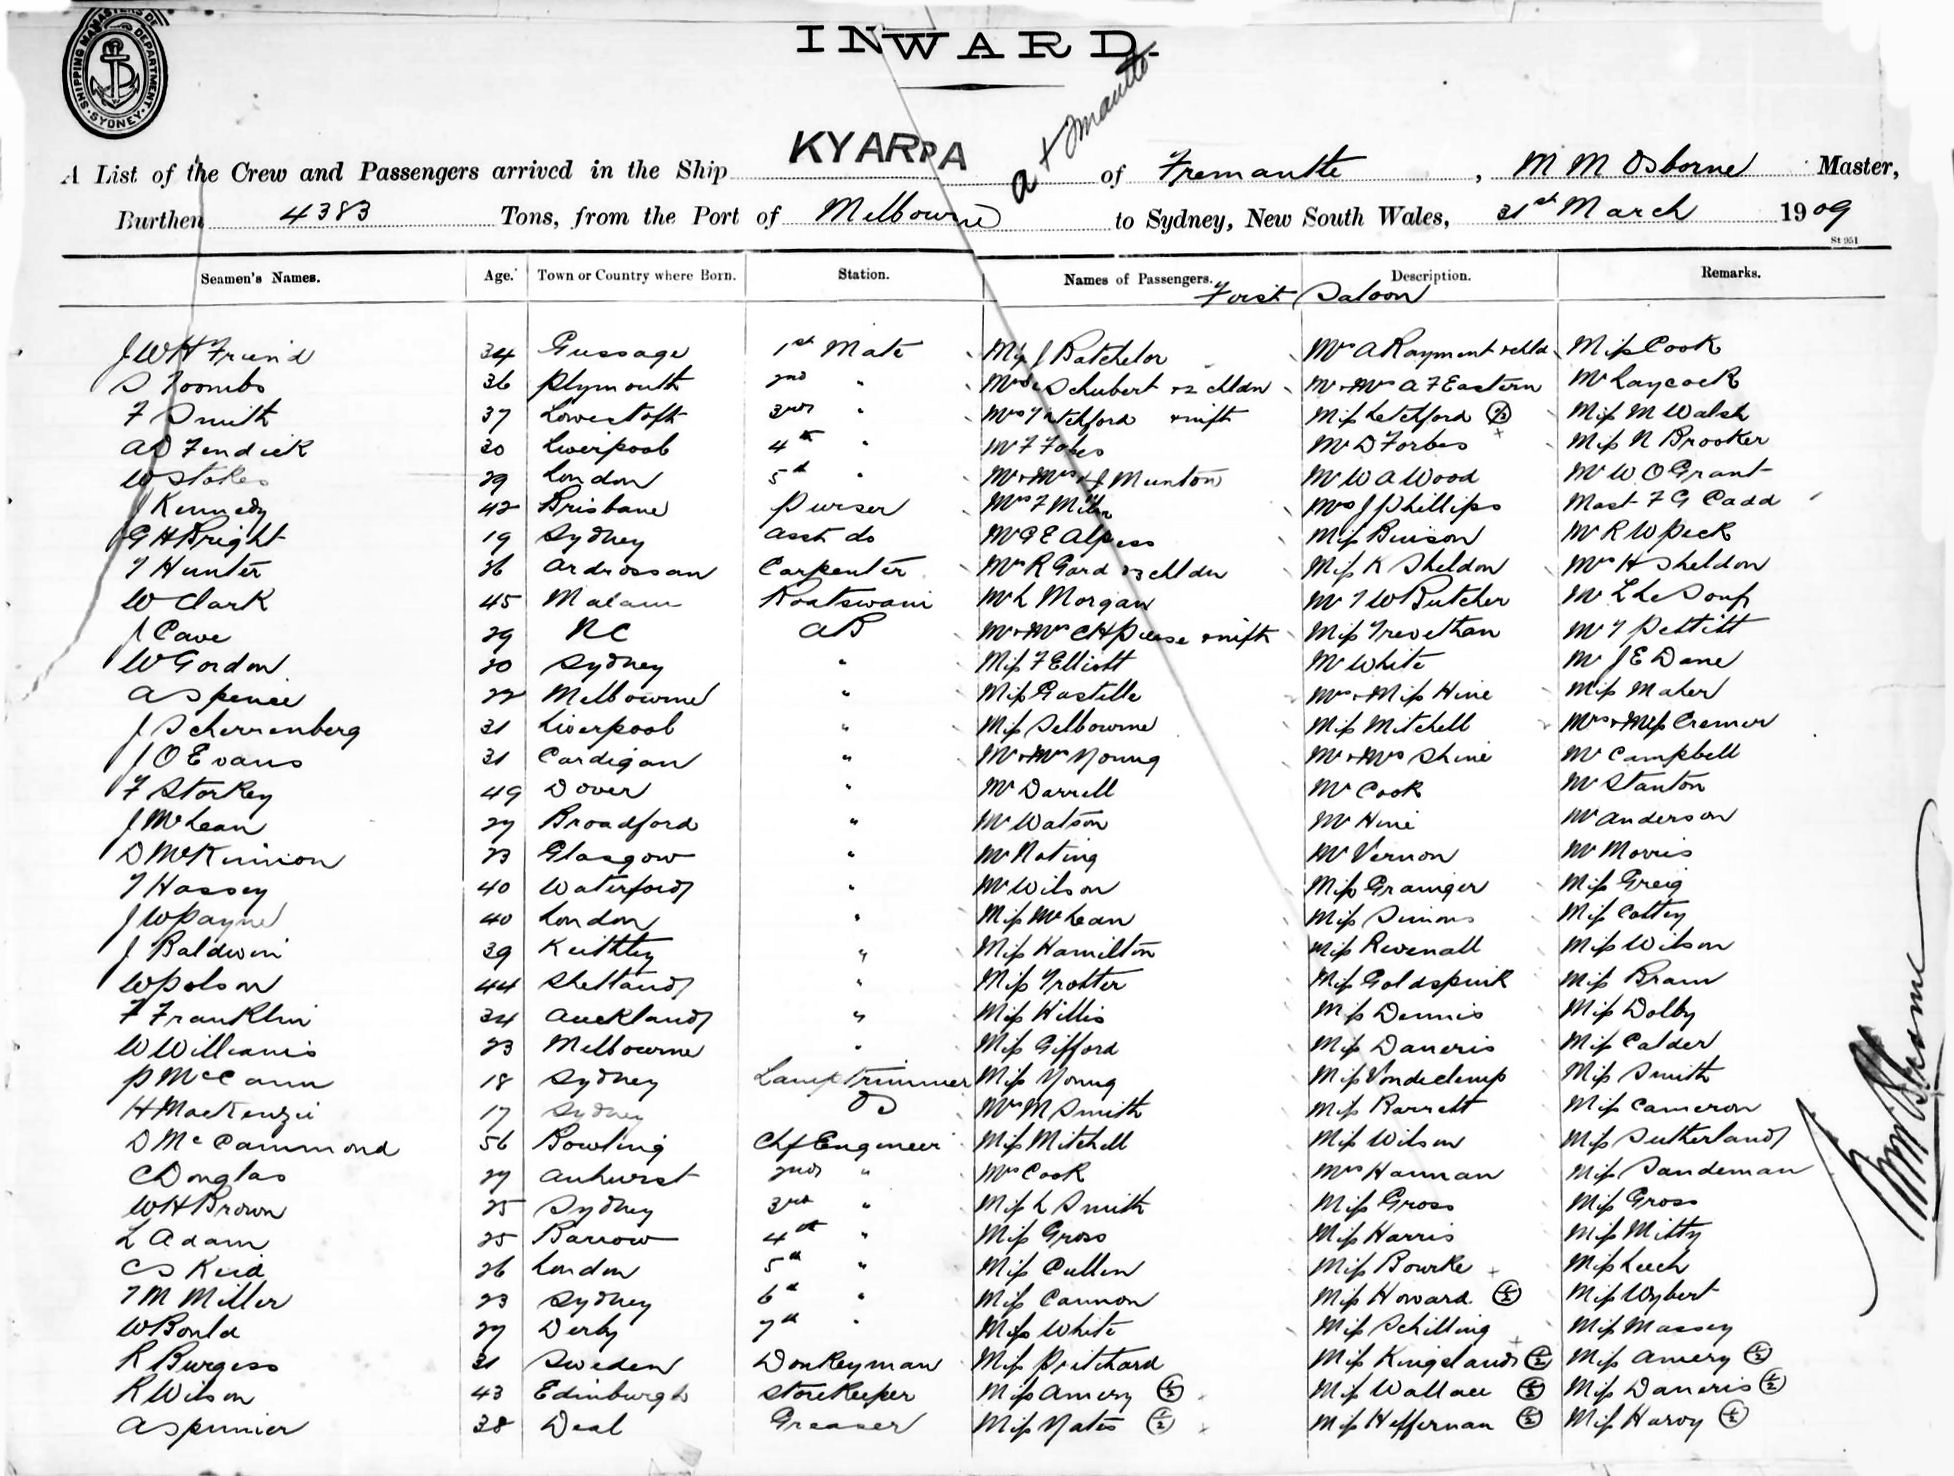 SHIPPING MASTERS DEPARTMENT
SYDNEY
INWARD.
A List of the Crew and Passengers arrived in the Ship KYARRA of Fremantle, M M Osborne Master,
Burthen 4383 Tons, from the Port of Melbourne to Sydney, New South Wales, 31st March 1909
St 951
Seamen's Names. Age. Town or Country where Born. Station. Names of Passengers. Description. Remarks.
First Saloon
J W H Friend 34 Gussage 1st Mate J Batchelor Mrs A Rayment + chld Miss Cook
S Toombs 36 Plymouth 2nd " Mrs Schubert + 2 chldn Mr + Mrs A F Eastern Mr Laycock
F Smith 37 Lowestoft 3rd " Miss Letchford Miss M Walsh
A D Fendick 30 Liverpool 4th " Mr D Forbes Miss N Brooker
W Stokes 29 London 5th " Munton Mr W A Wood Mr W O Grant
J Kennedy 42 Brisbane Purser Mrs F Mrs J Phillips Mast F G Cadd
G H Bright 19 Sydney Asst do Mr G E Miss Mr R W Peck
T Hunter 26 Ardrossan Carpenter Mrs R Gard + 3 chldn Miss K Sheldon Mrs H Sheldon
W Clark 45 Boatswain Mr L Morgan Mr T W Butcher Mr L Le Souf
J Cave 29 NC AB Mr + Mrs C H Piesse + inft Miss Trevethan Mr T Pettitt
W Gordon 20 Sydney " Miss F Elliott Mr White Mr J E Dane
A Spence 22 Melbourne " Miss Gastelle Mrs + Miss Hine Miss Maher
J Scherrenberg 31 Liverpool " Miss Selbourne Miss Mitchell Mrs + Miss Cremer
J O Evans 31 Cardigan " Mr + Mrs Young Mr + Mrs Shine Mr Campbell
F Storkey 49 Dover " Mr Darrell Mr Cook Mr Stanton
J McLean 27 Broadford " Mr Watson Mr Hine Mr Anderson
D McKinnon 23 Glasgow " Mr Nating Mr Vernon Mr Morris
T Hassey 40 Waterford " Mr Wilson Miss Grainger Miss Greig
J W Payne 40 London " Miss McLean Miss Simons Miss Cottey
J Baldwin 39 Keithley " Miss Hamilton Miss Revenall Miss Wilson
W Polson 44 Shetland " Miss Trotter Miss Goldspink Miss Bram
F Franklin 34 Auckland " Miss Hillis Miss Dennis Miss Dolby
W Williams 23 Melbourne " Miss Gifford Miss Daneris Miss Calder
P McCann 18 Sydney Lamp Trimmer Miss Young Miss Miss Smith
H MacKenzie 17 Sydney OS Mrs M Smith Miss Barrett Miss Cameron
D McCammond 56 Bowling Chf Engineer Miss Mitchell Miss Wilson Miss Sutherland
C Douglas 27 Amhurst 2nd " Mrs Cook Mrs Hannan Miss Sandeman
W H Brown 25 Sydney 3rd " Miss L Smith Miss Gross Miss Gross
L Adam 25 Barrow 4th " Miss Gross Miss Harris Miss Mitty
C S Keid 26 London 5th " Miss Cullen Miss Bourke Miss Leech
T M Miller 23 Sydney 6th " Miss Cannon Miss Howard ½ Miss Wybert
W Bould 27 Derby 7th " Miss White Miss Schilling Miss Massey
R Burgess 31 Sweden Donkeyman Miss Pritchard Miss Kingsland ½ Miss Amery ½
R Wilson 43 Edinburgh Storekeeper Miss Amery ½ Miss Wallace ½ Miss Daneris ½
A Spunier 38 Deal Greaser Miss Yates ½ Miss Heffernan ½ Miss Harvy ½